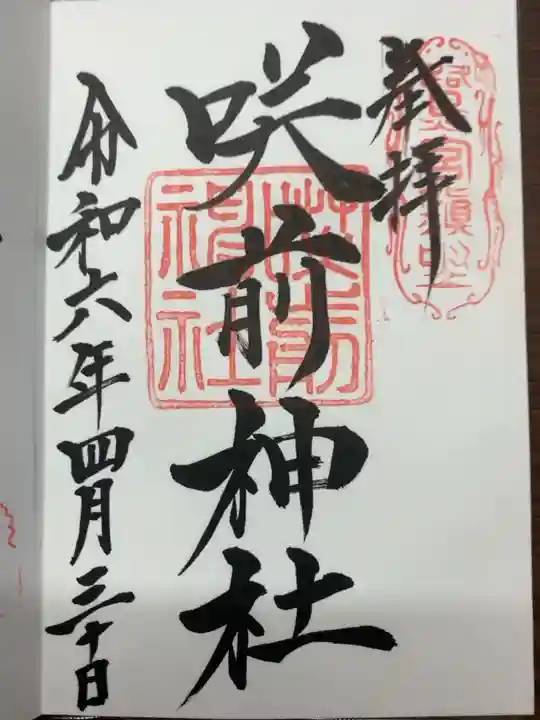 奉拝
咲前神社
咲前神社
令和六年四月三十日